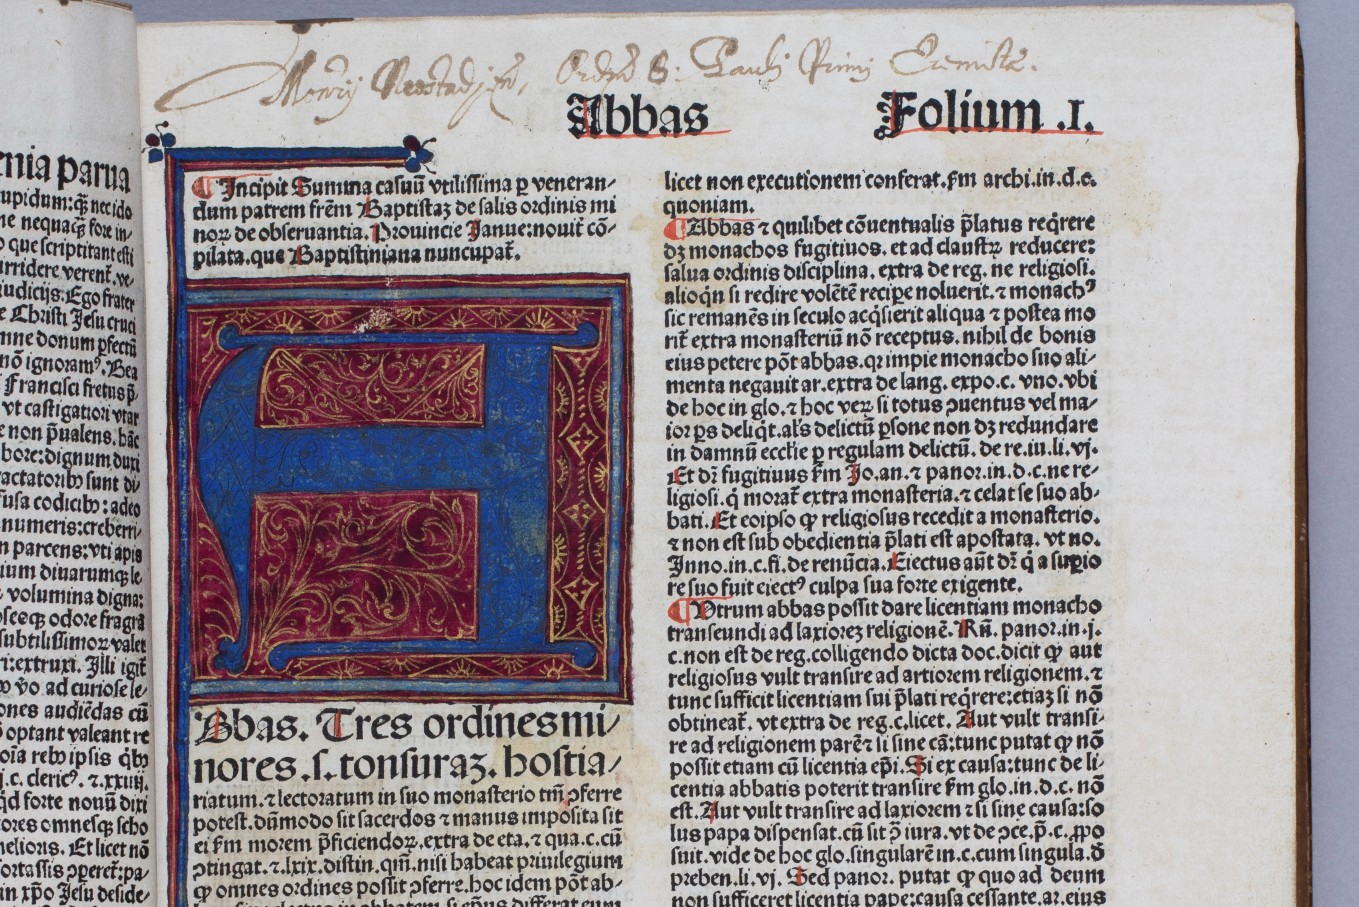 enia parua
cupidum:q̃ nec ido
ne nequaq̃ fore in-
o que scriptitant esti
irridere verent̃.ve-
iudicijs.Ego frater
e Christi Jesu cruci
mne donum ꝑfectũ
nõ ignoramꝰ.Bea
Francisci fretus p̃-
vt castigatiori vtar
e non p̃ualens.hãc
bore:dignum duxi
ractatoribꝰ sunt di-
fusa codicibꝰ:adeo
numeris:creberri-
n parcens:vti apis
ium diuarumq̃ le-
volumina digna:
osceq̃ odore fragrã
subtilissimoꝝ valet
ri:extruxi. Illi igit̃
ꝰ v̈o ad curiose le-
ones audiẽdas cũ
optant valeant re
oĩa rebꝰ ipsis q̈bꝰ
j.c. clericꝰ. ⁊.xxiiij.
qd forte nouũ dixi
ores omnesq̃ scho
melioris. Et licet nõ
fortassis ꝓperet̃:pa-
in xp̃o Jesu deside-
Monrÿ Neostadjen, Ordĩs S: Pauli Primi Eremitæ.
Abbas Folium .I.
¶ Incipit Summa casuũ vtilissima ꝑ veneran-
dum patrem frẽm Baptistaȝ de salis ordinis mi
noꝝ de obseruantia. Prouincie Janue:nouit̃ cõ-
pilata.que Baptistiniana nuncupat̃.
A
Bbas. Tres ordines mi-
nores .s. tonsuraȝ. hostia-
riatum.⁊ lectoratum in suo monasterio tm̃ ↄferre
potest.dũmodo sit sacerdos ⁊ manus imposita sit
ei ẜm morem p̃ficiendoꝝ.extra de eta.⁊ qua.c.cũ
ↄtingat.⁊.lxix.distin.qm̃.nisi habeat priuilegium
ꝙ omnes ordines possit ↄferre.hoc idem põt ab-
licet non executionem conferat.ẜm archi.in.d.c.
quoniam.
¶ Abbas ⁊ quilibet cõuentualis p̃latus req̈rere
dȝ monachos fugitiuos.et ad claustꝝ reducere:
salua ordinis disciplina. extra de reg. ne religiosi.
alioq̈n si redire volẽtẽ recipe noluerit.⁊ monachꝰ
sic remanẽs in seculo acq̈sierit aliqua ⁊ postea mo
rit̃ extra monasteriũ nõ receptus. nihil de bonis
eius petere põt abbas.qr impie monacho suo ali-
menta negauit ar.extra de lang. expo.c. vno.vbi
de hoc in glo.⁊ hoc veꝝ si totus ↄuentus vel ma-
ior ps deliq̈t.al's delictũ ꝑsone non dȝ redundare
in damnũ eccl'ie ꝑ regulam delictũ. de re.iu.li.vj.
Et dr̃ fugitiuus ẜm Jo.an.⁊ panor.in.d.c.ne re-
ligiosi.q̈ morat̃ extra monasteria.⁊ celat se suo ab-
bati.Et eoipso ꝙ religiosus recedit a monasterio.
⁊ non est sub obedientia p̃lati est apostata. vt no.
Inno.in.c.fi.de renũcia.Eiectus aũt dr̃ q̈ a supio
re suo fuit eiectꝰ culpa sua forte exigente.
¶ Utrum abbas possit dare licentiam monacho
transeundi ad laxioreȝ religionẽ. Rñ. panor.in.j.
c.non est de reg.colligendo dicta doc.dicit ꝙ aut
religiosus vult transire ad artiorem religionem.⁊
tunc sufficit licentiam sui p̃lati req̈rere:etiaȝ si nõ
obtineat̃. vt extra de reg.c.licet. Aut vult transi-
re ad religionem parẽ⁊ si sine cã:tunc putat ꝙ nõ
possit etiam cũ licentia ep̃i.Si ex causa:tunc de li-
centia abbatis poterit transire ẜm glo.in.d.c. nõ
est.Aut vult transire ad laxiorem ⁊ si sine causa:so
lus papa dispensat.cũ sit ↄ̃ iura. vt de ↄce.p̃.c. ꝓpo
suit.vide de hoc glo.singularẽ in.c.cum singula.d̃
preben.li.vj. Sed panor. putat ꝙ quo ad deum
non sufficeret licentia pape:causa cessante.ar.eius